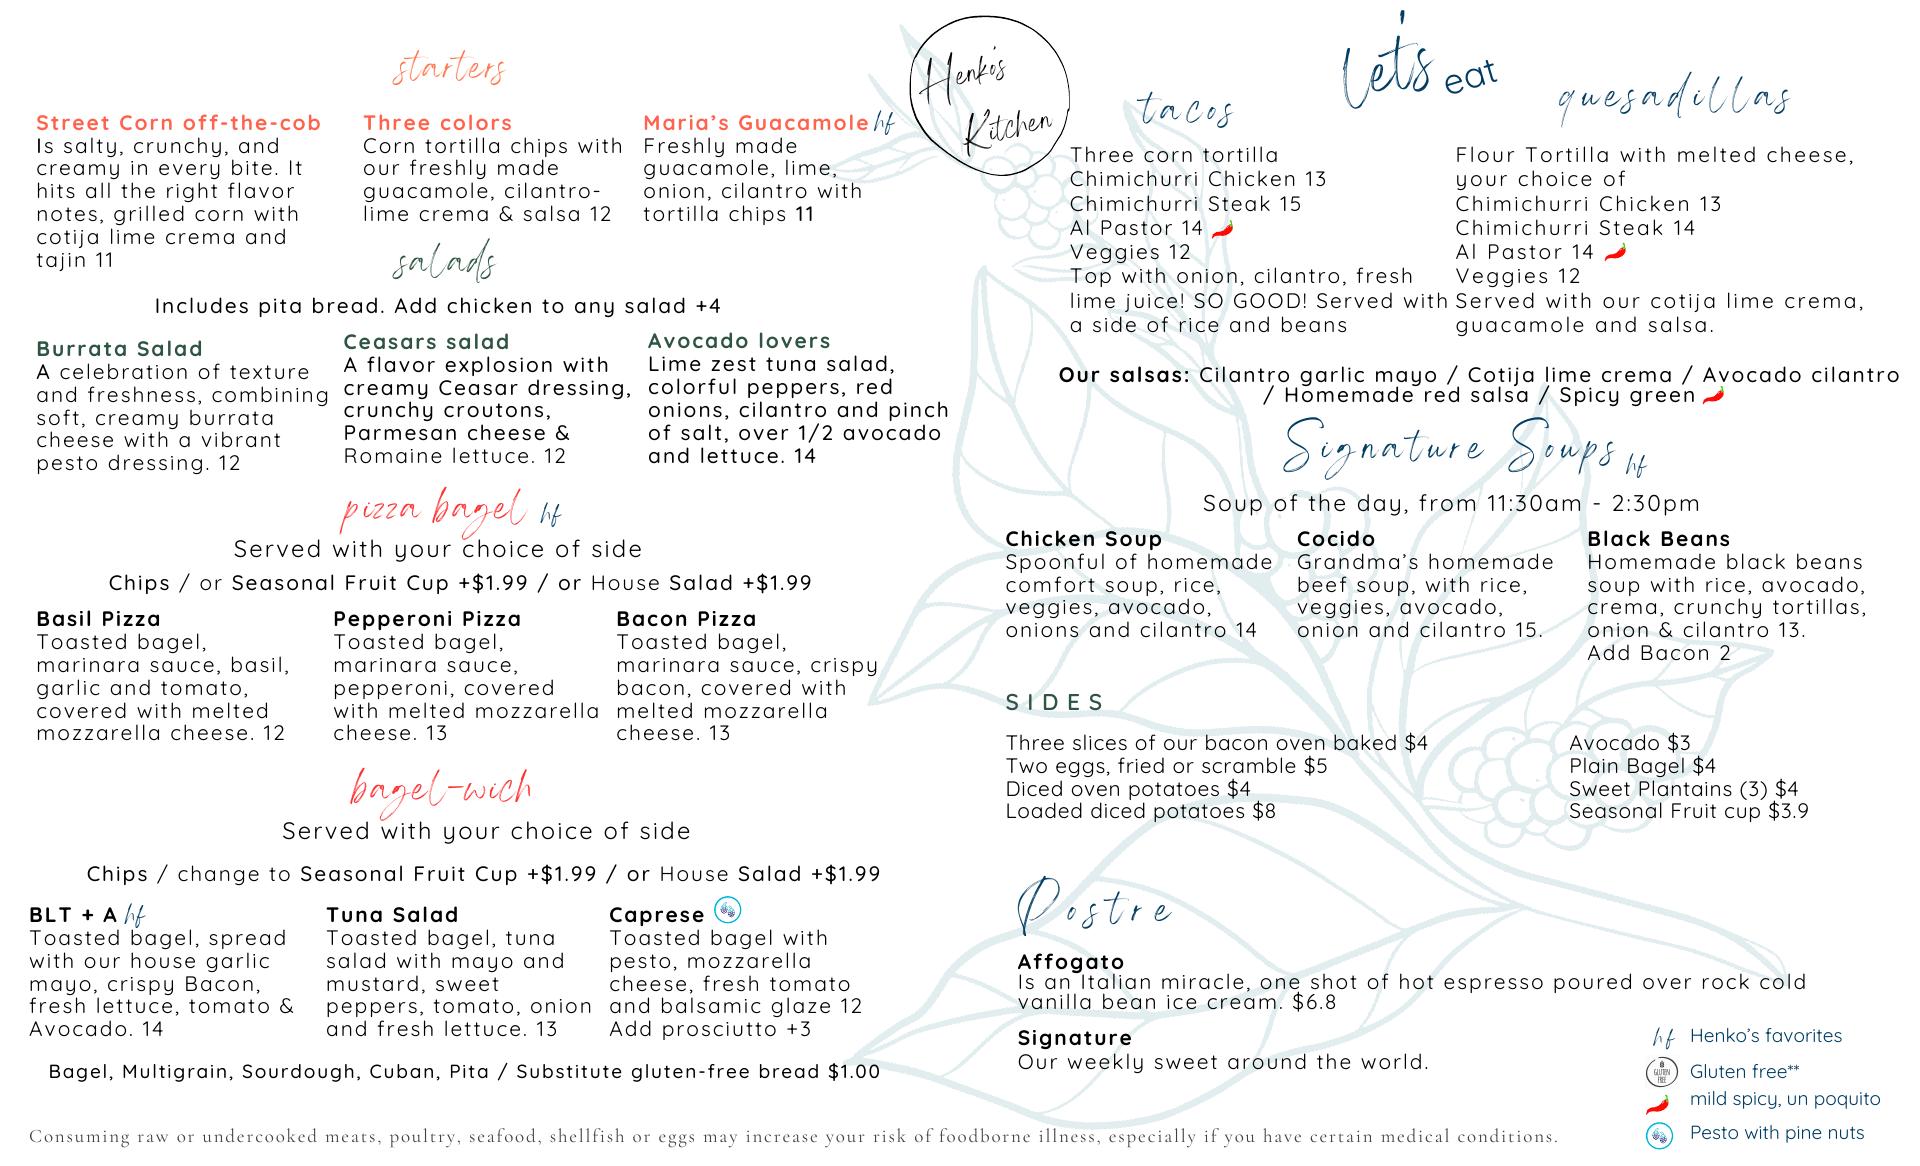 starters
Street Corn off-the-cob
Is salty, crunchy, and
creamy in every bite. It
hits all the right flavor
notes, grilled corn with
cotija lime crema and
tajin 11
Three colors
Corn tortilla chips with
our freshly made
guacamole, cilantro-
lime crema & salsa 12
Maria's Guacamole hf
Freshly made
guacamole, lime,
onion, cilantro with
tortilla chips 11
salads
Includes pita bread. Add chicken to any salad +4
Burrata Salad
A celebration of texture
and freshness, combining
soft, creamy burrata
cheese with a vibrant
pesto dressing. 12
Ceasars salad
A flavor explosion with
creamy Ceasar dressing,
crunchy croutons,
Parmesan cheese &
Romaine lettuce. 12
Avocado lovers
Lime zest tuna salad,
colorful peppers, red
onions, cilantro and pinch
of salt, over 1/2 avocado
and lettuce. 14
pizza bagel hf
Served with your choice of side
Chips / or Seasonal Fruit Cup +$1.99 / or House Salad +$1.99
Basil Pizza
Toasted bagel,
marinara sauce, basil,
garlic and tomato,
covered with melted
mozzarella cheese. 12
Pepperoni Pizza
Toasted bagel,
marinara sauce,
pepperoni, covered
with melted mozzarella
cheese. 13
Bacon Pizza
Toasted bagel,
marinara sauce, crispy
bacon, covered with
melted mozzarella
cheese. 13
bagel-wich
Served with your choice of side
Chips / change to Seasonal Fruit Cup +$1.99 / or House Salad +$1.99
BLT + A hf
Toasted bagel, spread
with our house garlic
mayo, crispy Bacon,
fresh lettuce, tomato &
Avocado. 14
Tuna Salad
Toasted bagel, tuna
salad with mayo and
mustard, sweet
peppers, tomato, onion
and fresh lettuce. 13
Caprese
Toasted bagel with
pesto, mozzarella
cheese, fresh tomato
and balsamic glaze 12
Add prosciutto +3
Bagel, Multigrain, Sourdough, Cuban, Pita / Substitute gluten-free bread $1.00
Henko's
Kitchen
let's eat
tacos
Three corn tortilla
Chimichurri Chicken 13
Chimichurri Steak 15
Al Pastor 14
Veggies 12
Top with onion, cilantro, fresh
lime juice! SO GOOD! Served with
a side of rice and beans
quesadillas
Flour Tortilla with melted cheese,
your choice of
Chimichurri Chicken 13
Chimichurri Steak 14
Al Pastor 14
Veggies 12
Served with our cotija lime crema,
guacamole and salsa.
Our salsas: Cilantro garlic mayo / Cotija lime crema / Avocado cilantro
/ Homemade red salsa / Spicy green
Signature Soups hf
Soup of the day, from 11:30am - 2:30pm
Chicken Soup
Spoonful of homemade
comfort soup, rice,
veggies, avocado,
onions and cilantro 14
Cocido
Grandma's homemade
beef soup, with rice,
veggies, avocado,
onion and cilantro 15.
Black Beans
Homemade black beans
soup with rice, avocado,
crema, crunchy tortillas,
onion & cilantro 13.
Add Bacon 2
SIDES
Three slices of our bacon oven baked $4
Two eggs, fried or scramble $5
Diced oven potatoes $4
Loaded diced potatoes $8
Avocado $3
Plain Bagel $4
Sweet Plantains (3) $4
Seasonal Fruit cup $3.9
Postre
Affogato
Is an Italian miracle, one shot of hot espresso poured over rock cold
vanilla bean ice cream. $6.8
Signature
Our weekly sweet around the world.
hf Henko's favorites
GLUTEN FREE Gluten free**
mild spicy, un poquito
Pesto with pine nuts
Consuming raw or undercooked meats, poultry, seafood, shellfish or eggs may increase your risk of foodborne illness, especially if you have certain medical conditions.